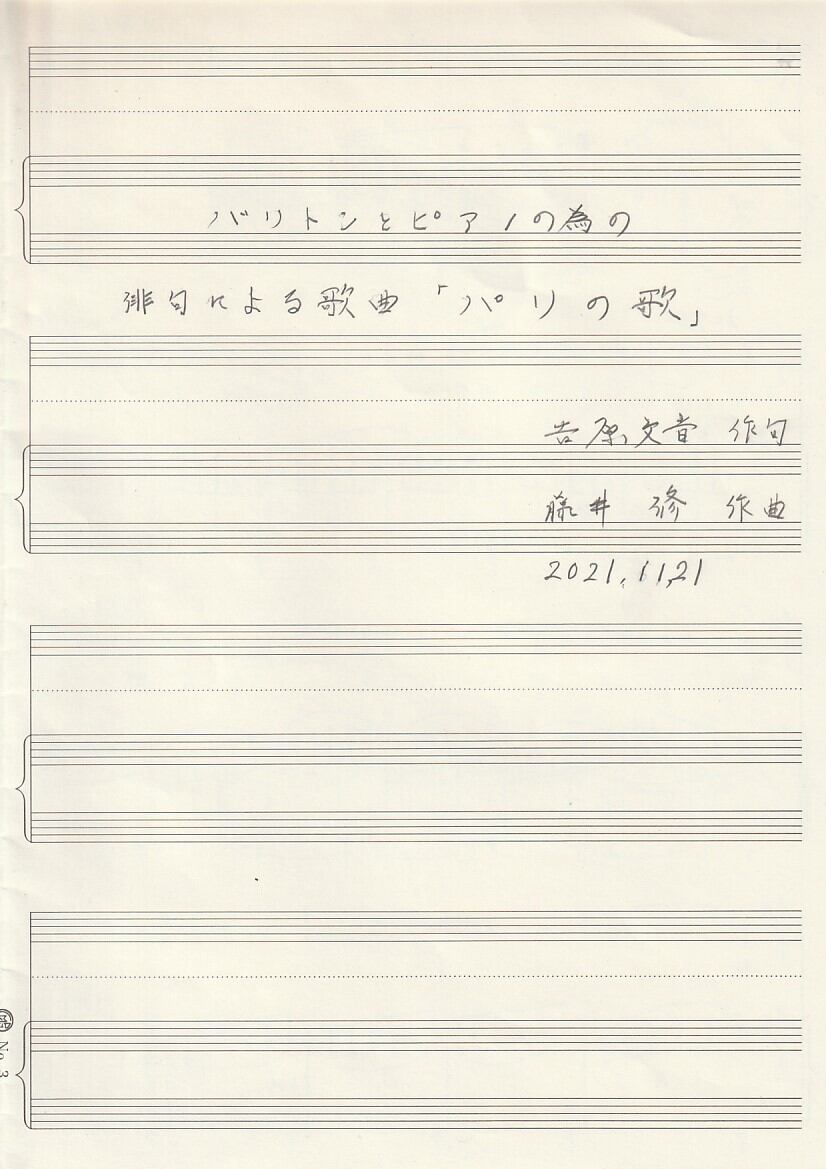 バリトンとピアノの為の
俳句による歌曲「パリの歌」
吉原文音 作句
藤井 修 作曲
2021.11.21
No. 3